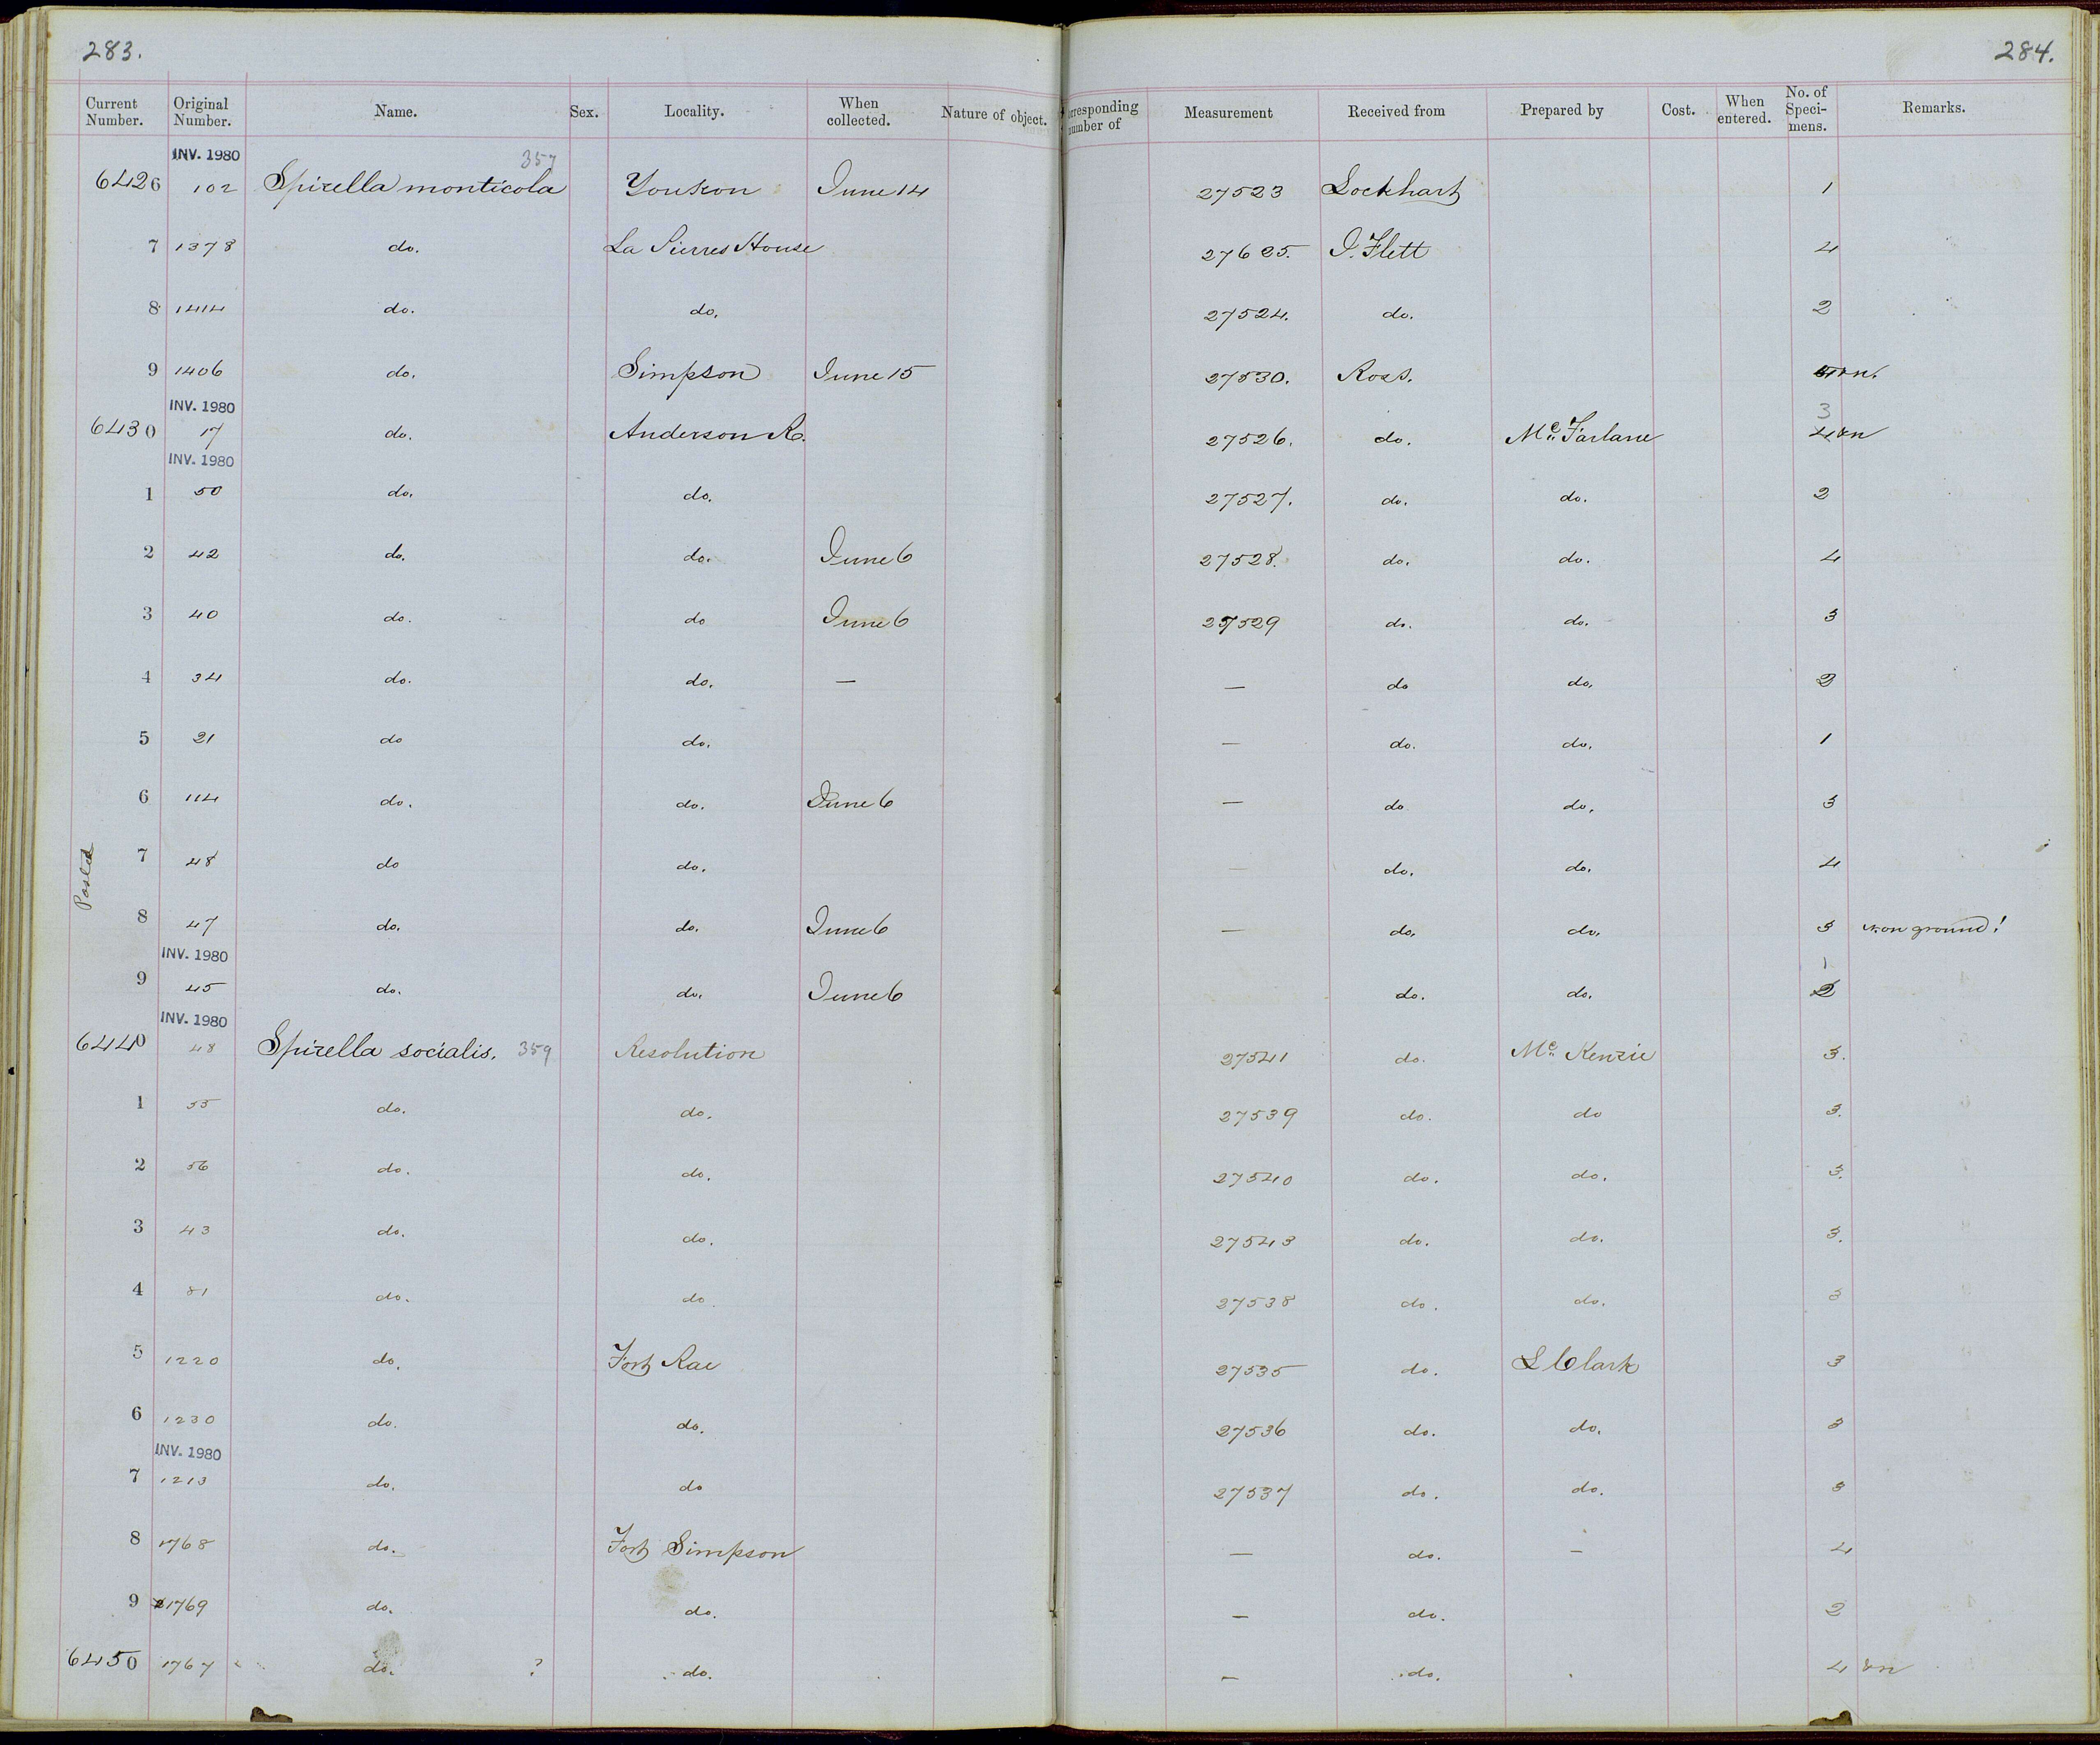 283.
284.
Current Number. Original Number. Name. Sex. Locality. When collected. Nature of object. orresponding number of Measurement Received from Prepared by Cost. When entered. No. of Speci-mens. Remarks.
INV. 1980 357
6426 102 Spizella monticola Youkon June 14 27523 Lockhart 1
7 1378 do. La Pierres House 27625. J. Flett 4
8 1414 do. do. 27524. do. 2
9 1406 do. Simpson June 15 27530. Ross. &n.
INV. 1980 3
6430 17 do. Anderson R. 27526. do. Mc Farlane 4 &n
INV. 1980
1 50 do. do. 27527. do. do. 2
2 42 do. do. June 6 27528. do. do. 4
3 40 do. do June 6 27529 do. do. 3
4 34 do. do. — — do do. 2
5 21 do do. — do. do. 1
6 114 do. do. June 6 — do do. 3
Posted
7 48 do do. — do. do. 4
8 47 do. do. June 6 — do. do. 3 n. on ground!
INV. 1980 1
9 45 do. do. June 6 do. do. 2
INV. 1980
6440 48 Spizella socialis. 359 Resolution 27541 do. Mc Kenzie 3.
1 55 do. do. 27539 do. do 3.
2 56 do. do. 27540 do. do. 3.
3 43 do. do. 27543 do. do. 3.
4 81 do. do. 27538 do. do. 3
5 1220 do. Fort Rae 27535 do. L Clark 3
6 1230 do. do. 27536 do. do. 3
INV. 1980
7 1213 do. do 27537 do. do. 3
8 1768 do. Fort Simpson — do. — 4
9 1769 do. do. — do. 2
6450 1767 do. ? do. — do. 4 &n